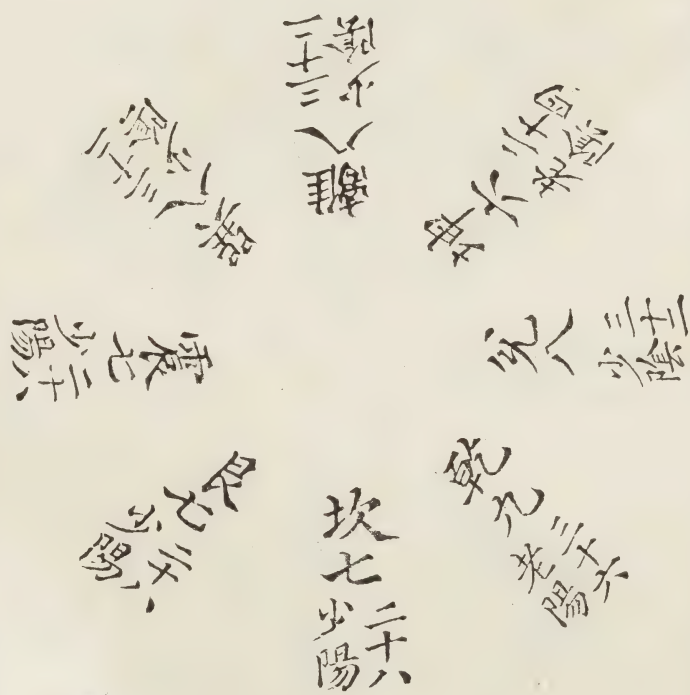 離八
三十二
少陰
坤六
二十四
老陰
兌八
三十二
少陰
乾九
三十六
老陽
坎七
二十八
少陽
艮七
二十八
少陽
震七
二十八
少陽
巽八
三十二
少陰